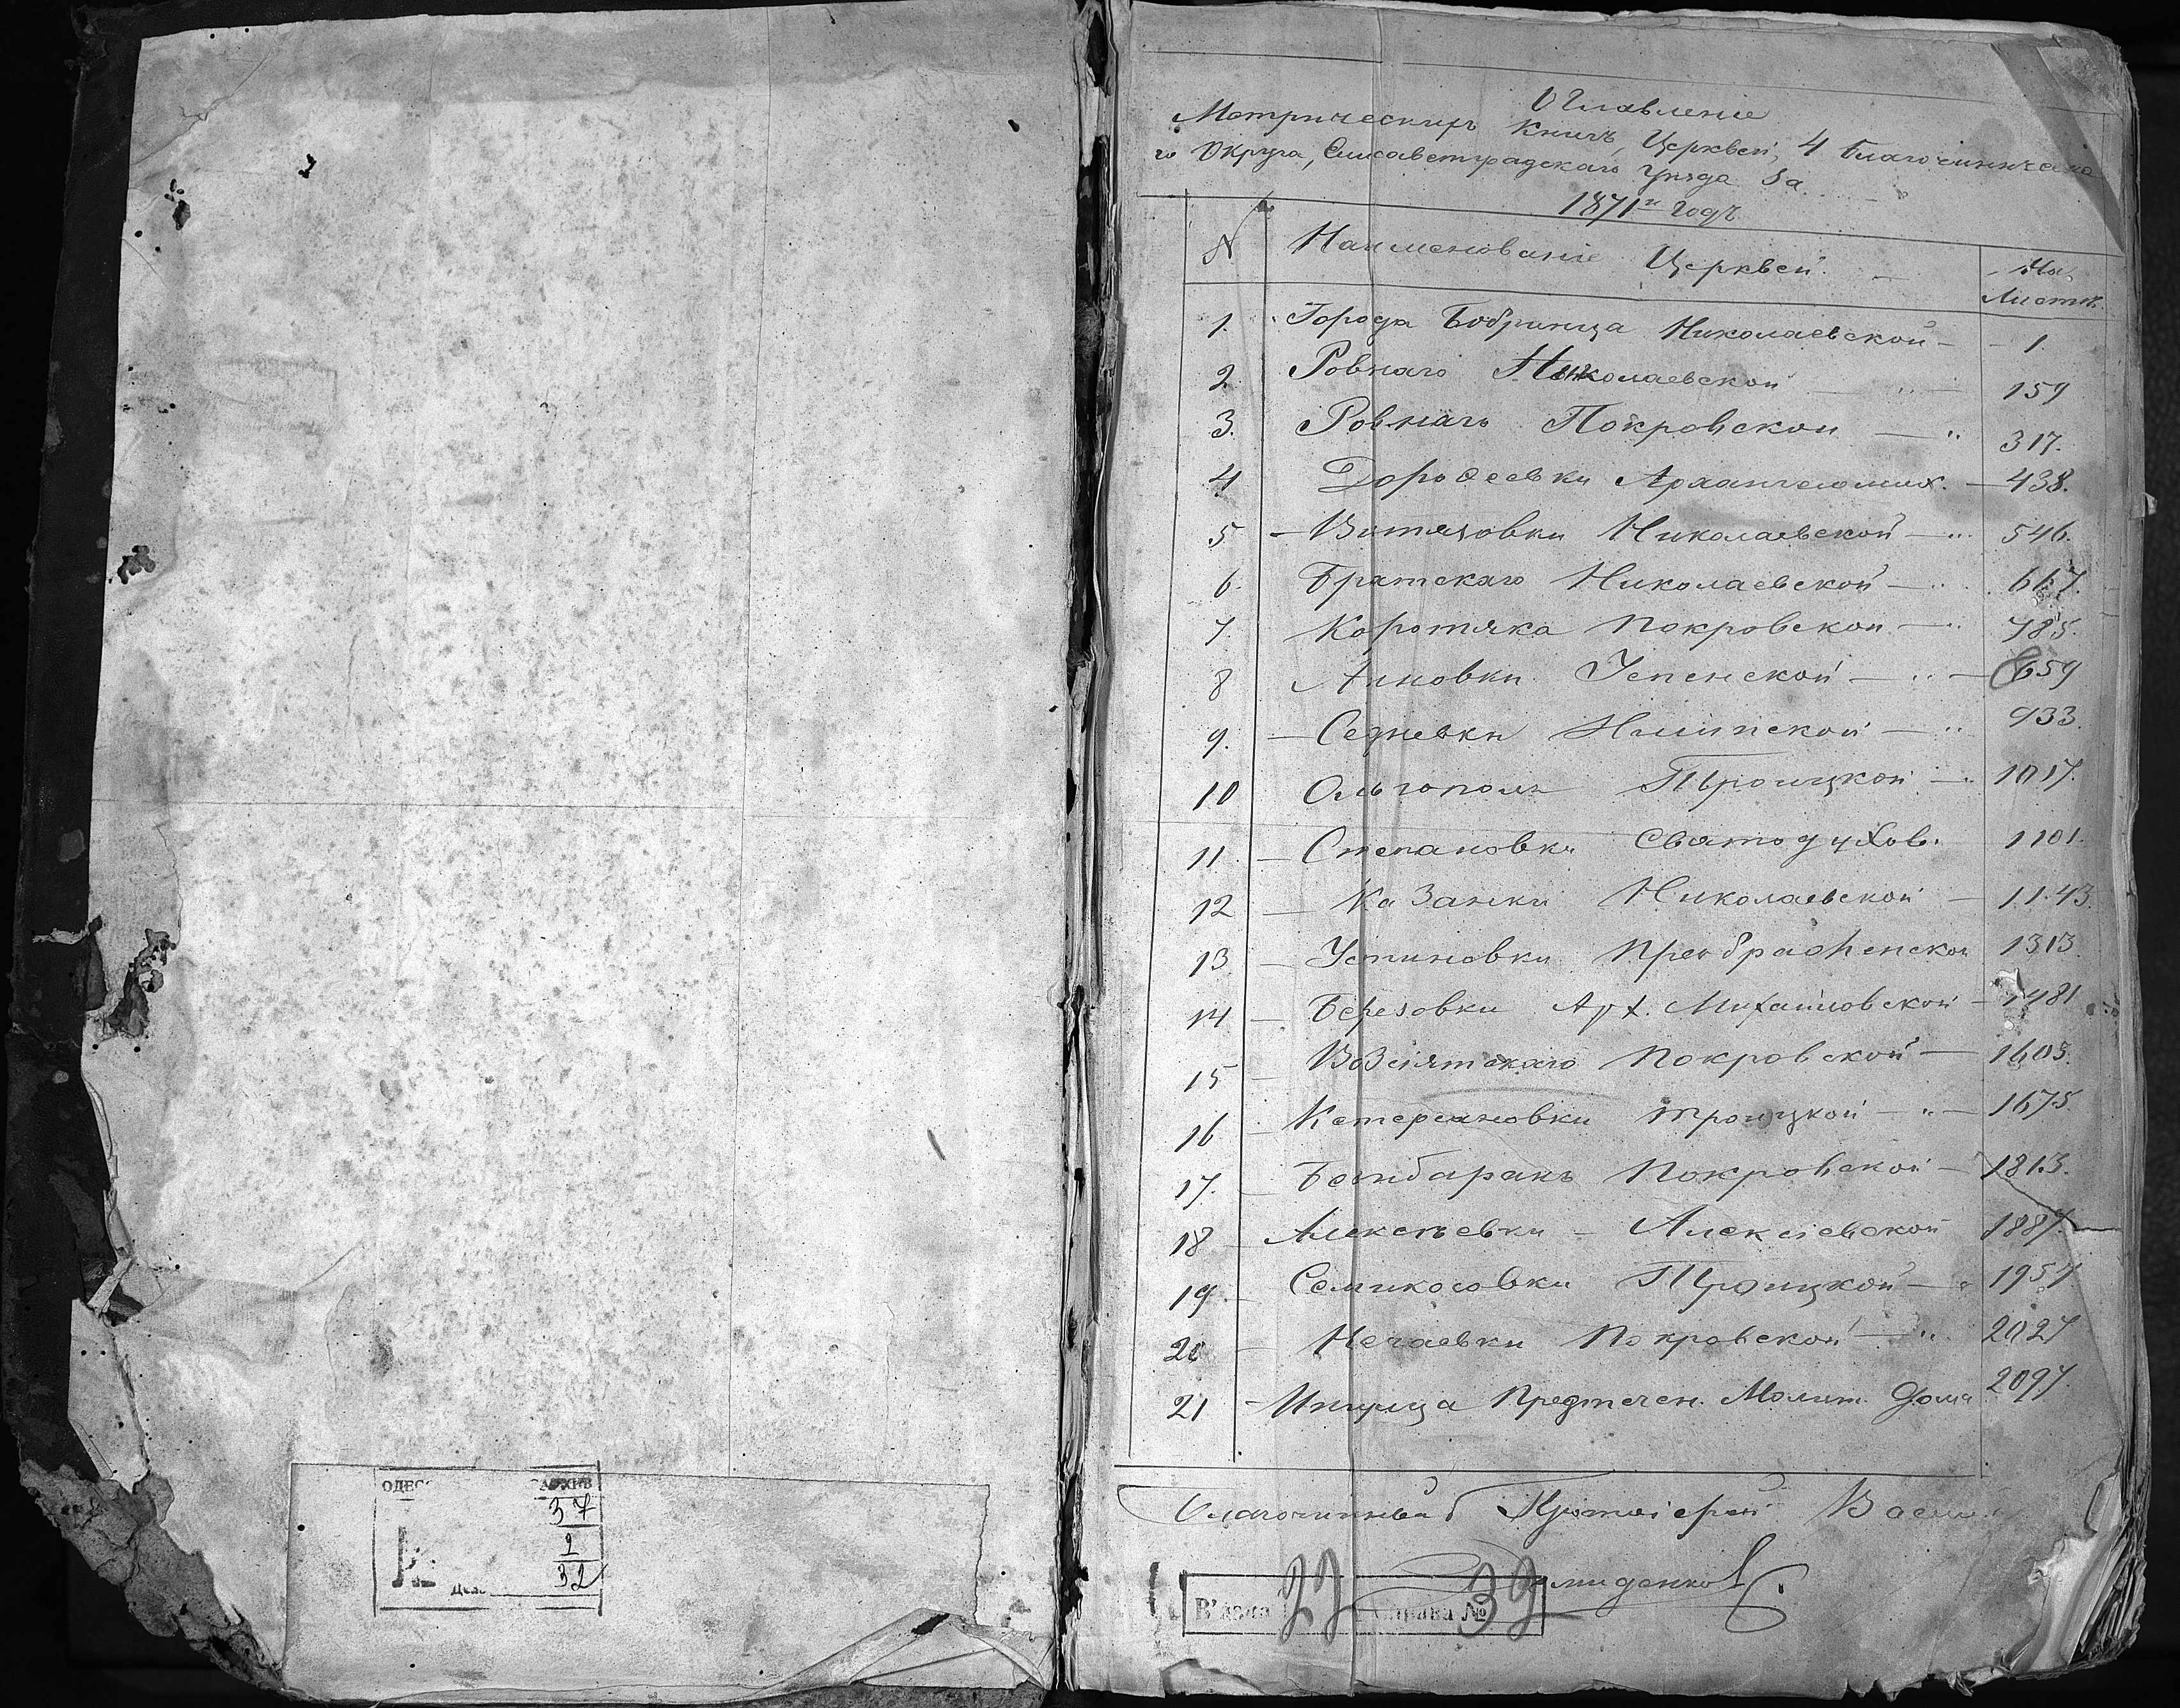 ОДЕС АРХИВ
37
2
32
Оглавленіе
Метрическихъ Книгъ, Церквей, 4 Благочинническа
го Округа, Елисаветградскаго Уѣзда За
1871й Годъ
№ Наименованіе Церквей. На Листѣ.
1. Города Бобринца Николаевской 1.
2. Ровнаго Николаевской 159
3. Ровнаго Покровской 317.
4 Дорофеевки 438.
5 Витязовки Николаевской 546.
6. Братскаго Николаевской 667.
7. Коротяка Покровской 785.
8 Анновки Успенской 859
9. Седневки 933
10 Ольгополя Троицкой 1017.
11. Степановки Святодухов. 1101.
12 Казанки Николаевской 1143.
13 Устиновки Преображенской 1313.
14 Березовки Арх. Михайловской 1481
15 Возсіятскаго Покровской 1605.
16 Катериновки Троицкой 1675.
17. Покровской 1813.
18 Алексѣевки Алексіевской 1887.
19 Семикосовки Троицкой 1957
20 Нечаевки Покровской 2027
21 Ингулца Предтечен. Молит. Дома 2097.
Благочинный Протоіерей Васил
В'язка 22 Справа № 32